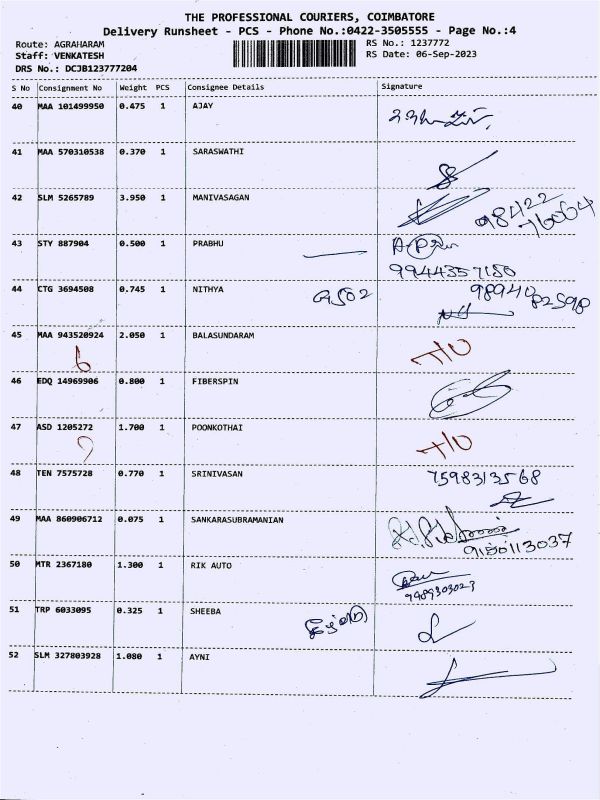 THE PROFESSIONAL COURIERS, COIMBATORE
Delivery Runsheet - PCS - Phone No.:0422-3505555 - Page No.:4
Route: AGRAHARAM RS No.: 1237772
Staff: VENKATESH RS Date: 06-Sep-2023
DRS No.: DCJB123777204
S No Consignment No Weight PCS Consignee Details Signature
40 MAA 101499950 0.475 1 AJAY
41 MAA 570310538 0.370 1 SARASWATHI
42 SLM 5265789 3.950 1 MANIVASAGAN 98422 76064
43 STY 887904 0.500 1 PRABHU
9944357150
44 CTG 3694508 0.745 1 NITHYA 98940 82598
45 MAA 943520924 2.050 1 BALASUNDARAM
46 EDQ 14969906 0.800 1 FIBERSPIN
47 ASD 1205272 1.700 1 POONKOTHAI
48 TEN 7575728 0.770 1 SRINIVASAN 7598313568
49 MAA 860906712 0.075 1 SANKARASUBRAMANIAN
50 MTR 2367180 1.300 1 RIK AUTO
51 TRP 6033095 0.325 1 SHEEBA
52 SLM 327803928 1.080 1 AYNI